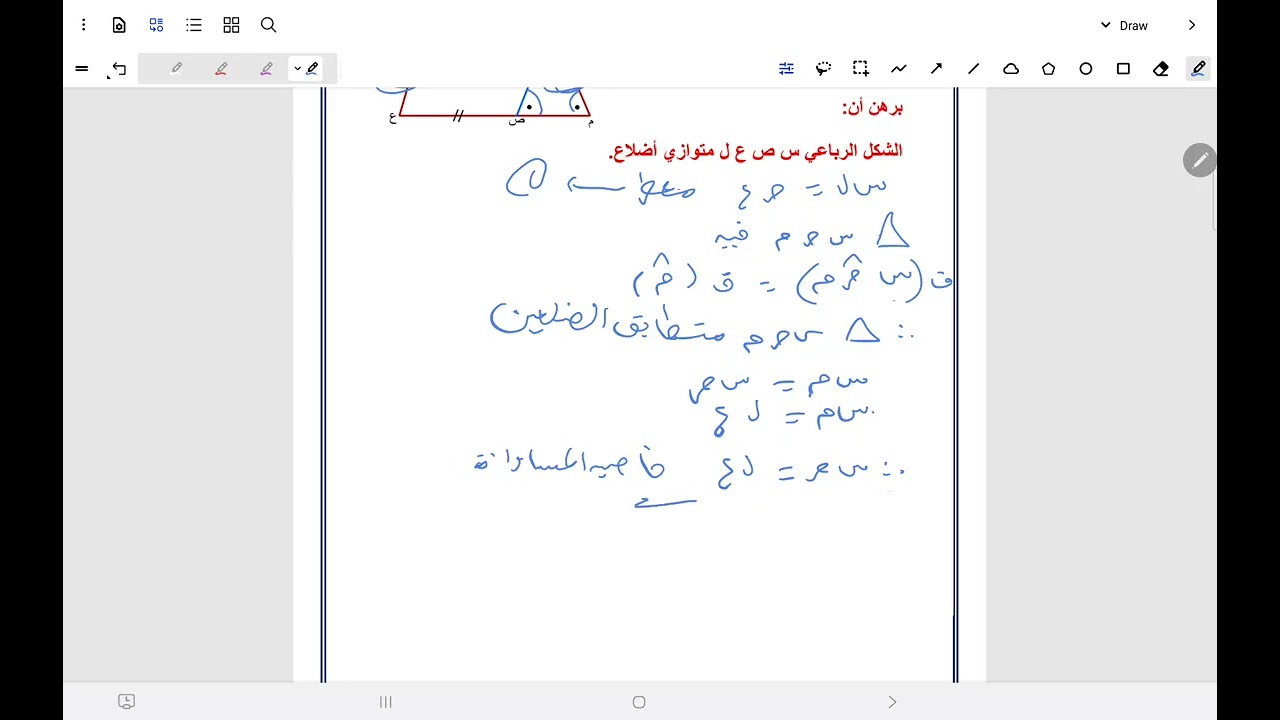 Draw
ع
//
ص
م
برهن أن:
الشكل الرباعي س ص ع ل متوازي أضلاع.
س ل = ص ع معطى ①
△ س ص م فيه
ق (س ص̂ م) = ق (م̂)
∴ △ س ص م متطابق الضلعين
س م = س ص
س م = ل ع
∴ س ص = ل ع خاصية المساواة